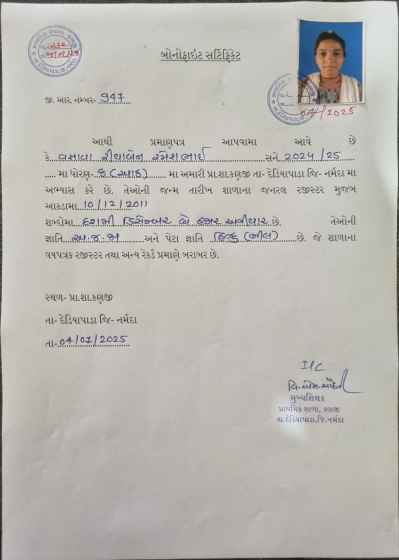 બોનોફાઇટ સર્ટિફિકેટ
જી. આર નમ્બર:- 947
04/2025
આથી પ્રમાણપત્ર આપવામાં આવે છે
કે વસાવા રીયાબેન રમેશભાઈ સને 2024/25
મા ધોરણ- ૭ (સાત) મા અમારી પ્રા.શા.કણજી તા- દેડિયાપાડા જિ- નર્મદા મા
અભ્યાસ કરે છે. તેઓની જન્મ તારીખ શાળાના જનરલ રજીસ્ટર મુજબ
આકડામા 10/12/2011
શબ્દોમા દશમી ડિસેમ્બર બે હજાર અગીયાર છે. તેઓની
જ્ઞાતિ અ.જ.જા અને પેટા જ્ઞાતિ હિન્દુ (ભીલ) છે. જે શાળાના
વયપત્રક રજીસ્ટર તથા અન્ય રેકર્ડ પ્રમાણે બરાબર છે.
સ્થળ:- પ્રા.શા.કણજી
તા- દેડિયાપાડા જિ- નર્મદા
તા- 04/07/2025
I/C
મુખ્યશિક્ષક
પ્રાથમિક શાળા, કણજી
તા.દેડિયાપાડા,જિ.નર્મદા